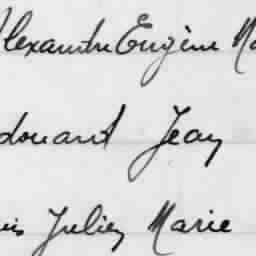 Alexandre Eugène Ma
douard Jean
uis Julien Marie